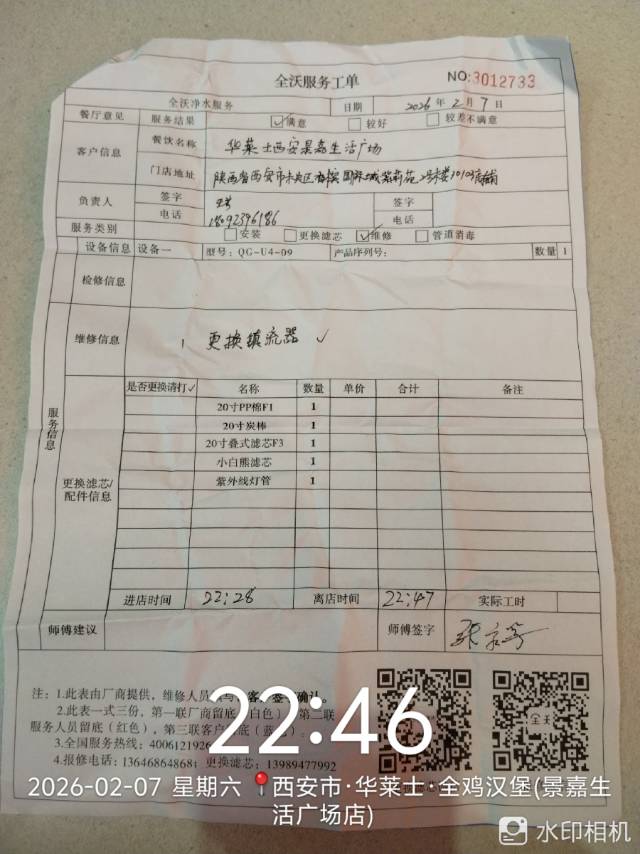 全沃服务工单
NO:3012733
全沃净水服务 日期 2026年2月7日
餐厅意见 服务结果 ☑满意 □较好 □较差不满意
客户信息 餐饮名称 华莱士西安景嘉生活广场
门店地址 陕西省西安市未央区 国际 号楼10103商铺
负责人 签字 签字
电话 18092396186 电话
服务类别 □安装 □更换滤芯 ☑维修 □管道消毒
设备信息 设备一 型号：QG-U4-09 产品序列号： 数量 1
检修信息
服务信息
维修信息 1 更换镇流器 ✓
更换滤芯/配件信息
是否更换请打✓ 名称 数量 单价 合计 备注
20寸PP棉F1 1
20寸炭棒 1
20寸叠式滤芯F3 1
小白熊滤芯 1
紫外线灯管 1
进店时间 22:28 离店时间 22:47 实际工时
师傅建议 师傅签字
注：1.此表由厂商提供，维修人员 客 确认。
2.此表一式三份，第一联厂商留底（白色） 第二联
服务人员留底（红色），第三联客户 底（蓝
3.全国服务热线：4006121926
4.报修电话：13646864868；更换滤芯：13989477992
全沃
22:46
2026-02-07 星期六 西安市·华莱士·全鸡汉堡(景嘉生
活广场店)
水印相机